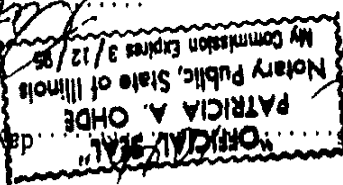 "OFFICIAL SEAL"
PATRICIA A. OHDE
Notary Public, State of Illinois
My Commission Expires 3/12/95